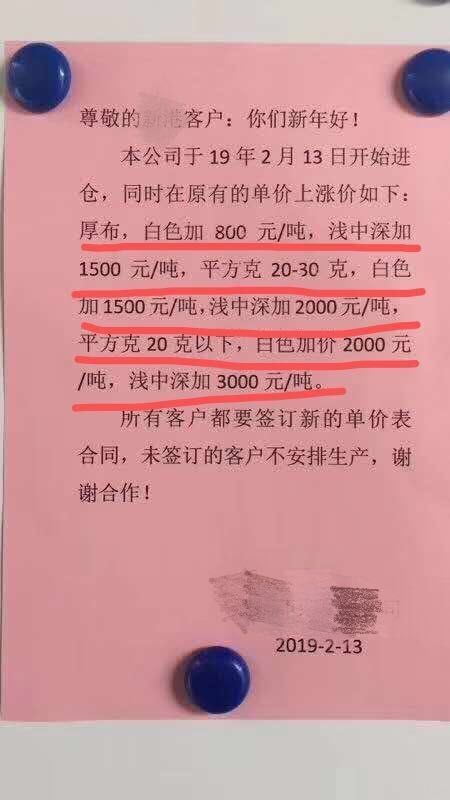 尊敬的新港客户：你们新年好！
本公司于19年2月13日开始进
仓，同时在原有的单价上涨价如下：
厚布，白色加 800 元/吨，浅中深加
1500 元/吨，平方克 20-30 克，白色
加1500元/吨,浅中深加2000元/吨，
平方克20克以下，白色加价2000元
/吨，浅中深加3000元/吨。
所有客户都要签订新的单价表
合同，未签订的客户不安排生产，谢
谢合作！
2019-2-13